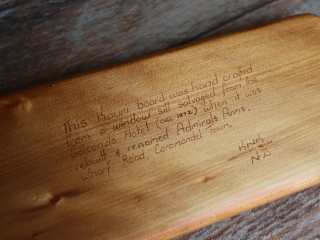 This Kauri board was hand crafted
from a window sill salvaged from the
Golconda Hotel (circ 1872) when it was
rebuilt & renamed Admirals Arms.
Wharf Road, Coromandel Town,
NZ